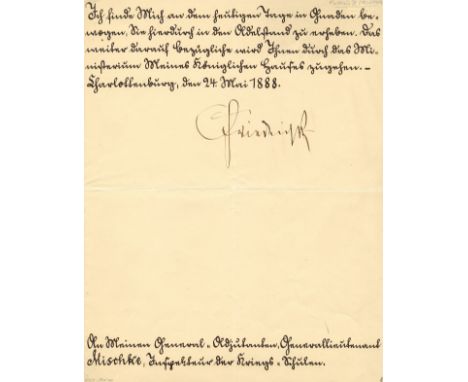 Ich finde Mich an dem heutigen Tage in Gnaden be-
wogen, Sie hierdurch in den Adelstand zu erheben. Das
weiter darauf bezügliche wird Ihnen durch das Mi-
nisterium Meines Königlichen Hauses zugehen. –
Charlottenburg, den 24. Mai 1888.
Friedrich
An Meinen General-Adjutanten, Generallieutenant
Mischke, Inspekteur der Kriegs-Schulen.